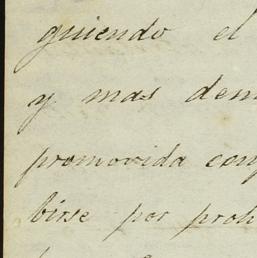 guiendo el
y mas dem
promovida con
birse por proh